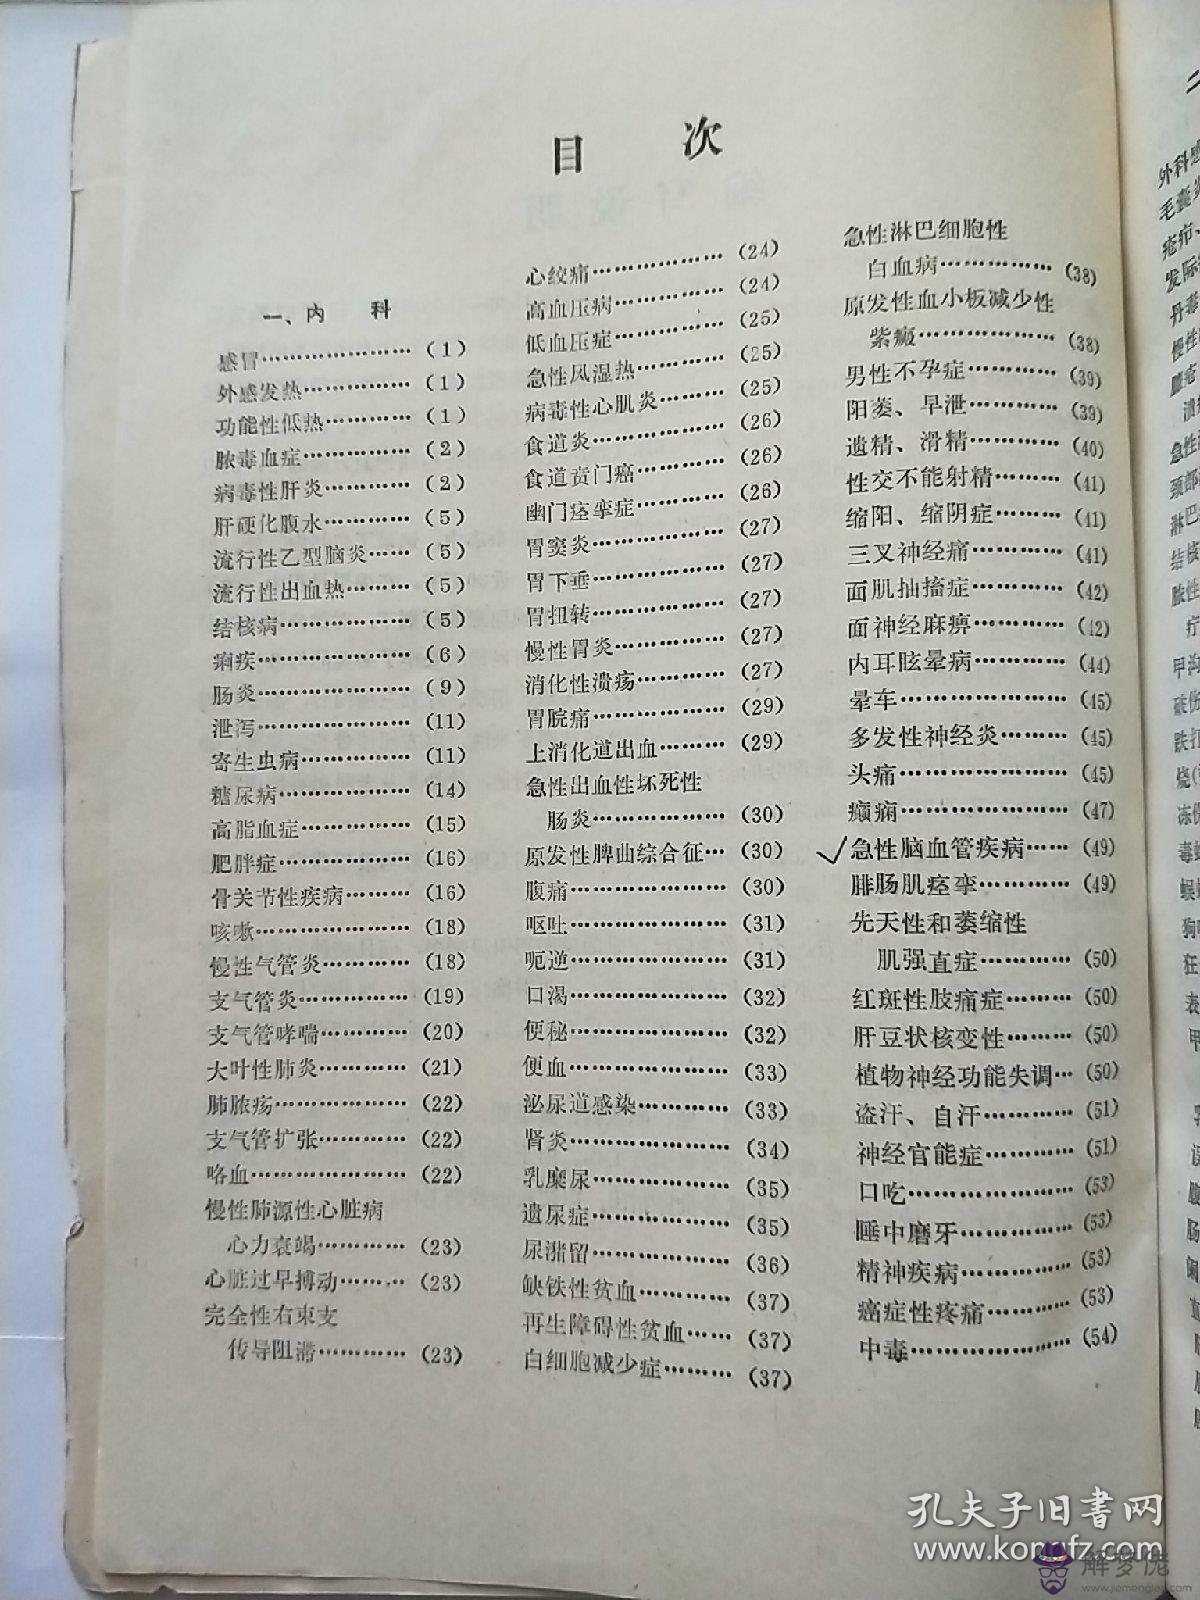 目 次
一、内 科
感冒…………………(1)
外感发热……………(1)
功能性低热…………(1)
脓毒血症……………(2)
病毒性肝炎…………(2)
肝硬化腹水…………(5)
流行性乙型脑炎……(5)
流行性出血热………(5)
结核病………………(5)
痢疾…………………(6)
肠炎…………………(9)
泄泻…………………(11)
寄生虫病……………(11)
糖尿病………………(14)
高脂血症……………(15)
肥胖症………………(16)
骨关节性疾病………(16)
咳嗽…………………(18)
慢性气管炎…………(18)
支气管炎……………(19)
支气管哮喘…………(20)
大叶性肺炎…………(21)
肺脓疡………………(22)
支气管扩张…………(22)
咯血…………………(22)
慢性肺源性心脏病
心力衰竭…………(23)
心脏过早搏动………(23)
完全性右束支
传导阻滞…………(23)
心绞痛………………(24)
高血压病……………(24)
低血压症……………(25)
急性风湿热…………(25)
病毒性心肌炎………(25)
食道炎………………(26)
食道贲门癌…………(26)
幽门痉挛症…………(26)
胃窦炎………………(27)
胃下垂………………(27)
胃扭转………………(27)
慢性胃炎……………(27)
消化性溃疡…………(27)
胃脘痛………………(29)
上消化道出血………(29)
急性出血性坏死性
肠炎………………(30)
原发性脾曲综合征…(30)
腹痛…………………(30)
呕吐…………………(31)
呃逆…………………(31)
口渴…………………(32)
便秘…………………(32)
便血…………………(33)
泌尿道感染…………(33)
肾炎…………………(34)
乳糜尿………………(35)
遗尿症………………(35)
尿潴留………………(36)
缺铁性贫血…………(37)
再生障碍性贫血……(37)
白细胞减少症………(37)
急性淋巴细胞性
白血病……………(38)
原发性血小板减少性
紫癜………………(38)
男性不孕症…………(39)
阳萎、早泄…………(39)
遗精、滑精…………(40)
性交不能射精………(41)
缩阳、缩阴症………(41)
三叉神经痛…………(41)
面肌抽搐症…………(42)
面神经麻痹…………(42)
内耳眩晕病…………(44)
晕车…………………(45)
多发性神经炎………(45)
头痛…………………(45)
癫痫…………………(47)
✓急性脑血管疾病……(49)
腓肠肌痉挛…………(49)
先天性和萎缩性
肌强直症…………(50)
红斑性肢痛症………(50)
肝豆状核变性………(50)
植物神经功能失调…(50)
盗汗、自汗…………(51)
神经官能症…………(51)
口吃…………………(53)
睡中磨牙……………(53)
精神疾病……………(53)
癌症性疼痛…………(53)
中毒…………………(54)
孔夫子旧書网
www.kongfz.com
解梦佬
www.jiemenglao.com